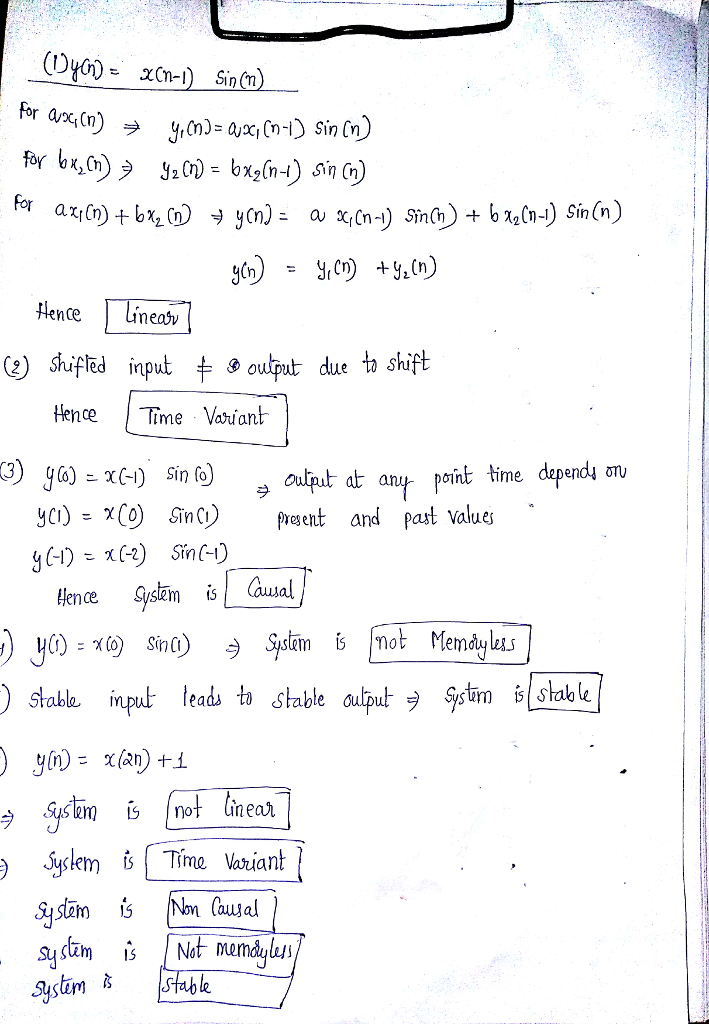 (1) y(n) = x(n-1) Sin(n)
For ax₁(n) ⇒ y₁(n) = ax₁(n-1) Sin(n)
For bx₂(n) ⇒ y₂(n) = bx₂(n-1) Sin(n)
For ax₁(n) + bx₂(n) ⇒ y(n) = a x₁(n-1) Sin(n) + b x₂(n-1) Sin(n)
y(n) = y₁(n) + y₂(n)
Hence Linear
(2) Shifted input ≠ output due to shift
Hence Time Variant
(3) y(0) = x(-1) Sin(0) ⇒ output at any point time depends on
y(1) = x(0) Sin(1) present and past values
y(-1) = x(-2) Sin(-1)
Hence System is Causal
) y(1) = x(0) Sin(1) ⇒ System is not Memoryless
) Stable input leads to stable output ⇒ System is stable
) y(n) = x(2n) + 1
⇒ System is not linear
⇒ System is Time Variant
System is Non Causal
System is Not memoryless
System is Stable